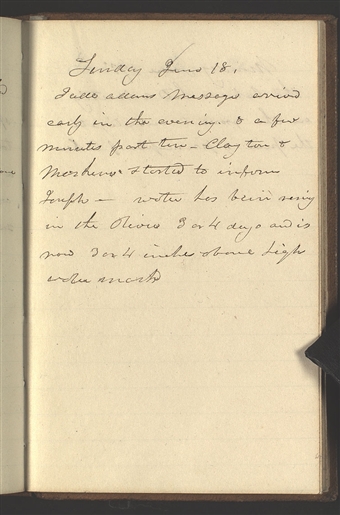 Sunday June 18.
Jade adams message arived
early in the evening. & a few
minutes past ten - Clayton &
started to inform
Joseph - water has been rising
in the 3 or 4 days and is
now 3 or 4 inches above high
water mark